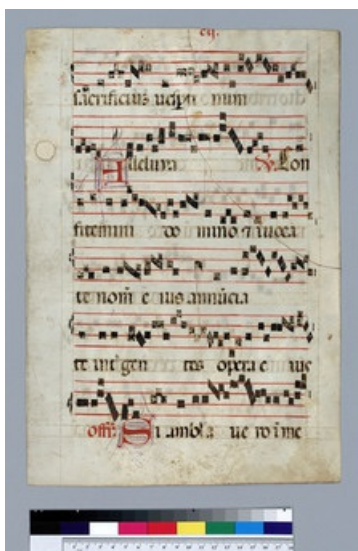 cij.
sacrificiũ uesper tinum
Alleluya ℣. Con
fitemini do mino ⁊ inuoca
te nomẽ e ius annũcia
te int̃ gen tes opera e ius
offr̃. Si ambula ue ro ĩ me